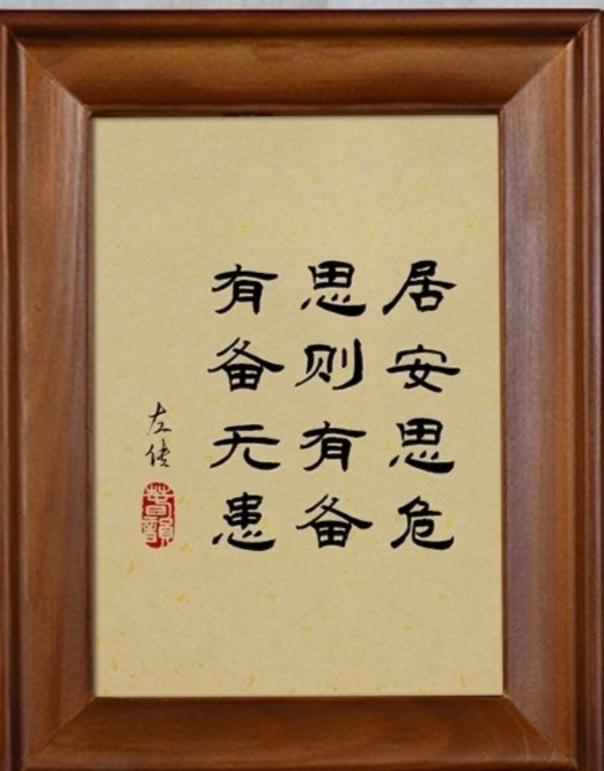 居安思危
思则有备
有备无患
左传